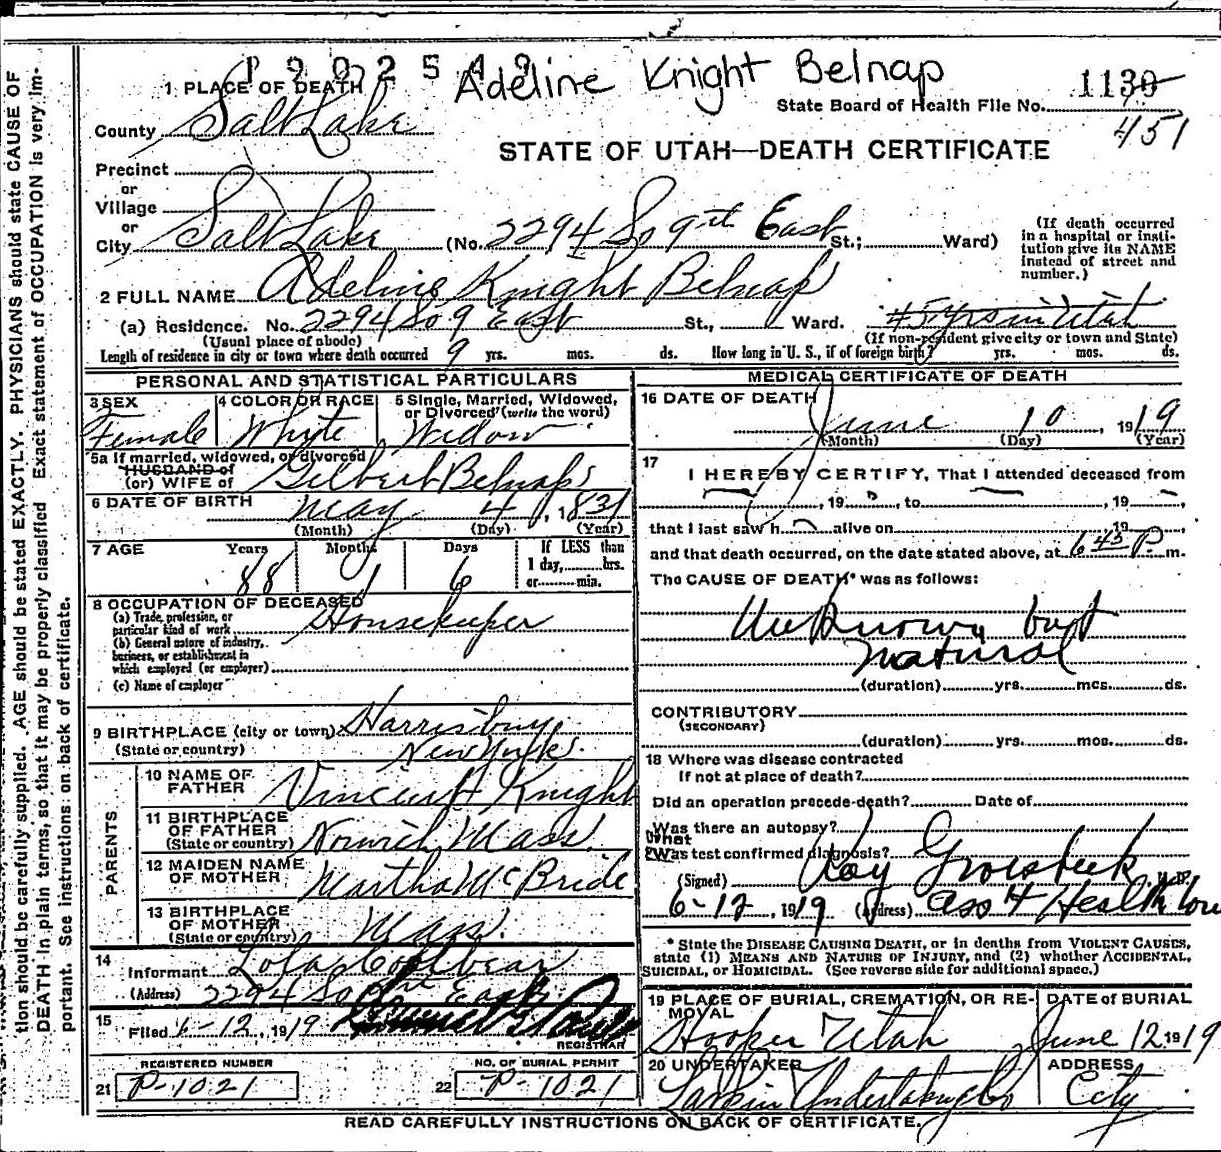 P9025 4 9
Adeline Knight Belnap
1130
451
State Board of Health File No.
STATE OF UTAH—DEATH CERTIFICATE
1 PLACE OF DEATH
County Salt Lake
Precinct
or
Village
or
City Salt Lake (No. 2294 So 9th East St.; Ward)
(If death occurred
in a hospital or insti-
tution give its NAME
instead of street and
number.)
2 FULL NAME Adeline Knight Belnap
(a) Residence. No. 2294 So 9 East St., Ward. 45 yrs in Utah
(Usual place of abode) (If non-resident give city or town and State)
Length of residence in city or town where death occurred 9 yrs. mos. ds. How long in U. S., if of foreign birth? yrs. mos. ds.
PERSONAL AND STATISTICAL PARTICULARS
3 SEX Female
4 COLOR OR RACE Whyte
5 Single, Married, Widowed,
or Divorced (write the word)
Widow
5a If married, widowed, or divorced
HUSBAND of
(or) WIFE of Gilbert Belnap
6 DATE OF BIRTH May 4, 1831
(Month) (Day) (Year)
7 AGE Years Months Days If LESS than
1 day, hrs.
or min.
88 1 6
8 OCCUPATION OF DECEASED
(a) Trade, profession, or
particular kind of work Housekeeper
(b) General nature of industry,
business, or establishment in
which employed (or employer)
(c) Name of employer
9 BIRTHPLACE (city or town) Harrisburg
(State or country) New York
PARENTS
10 NAME OF
FATHER Vincent Knight
11 BIRTHPLACE
OF FATHER
(State or country) Norwich Mass.
12 MAIDEN NAME
OF MOTHER Martha McBride
13 BIRTHPLACE
OF MOTHER
(State or country) Mass.
14
Informant Lola
(Address) 2294 So 9th East
15
Filed 6-12, 1919
REGISTRAR
REGISTERED NUMBER
21 P-1021
NO. OF BURIAL PERMIT
22 P-1021
MEDICAL CERTIFICATE OF DEATH
16 DATE OF DEATH
June 10, 1919
(Month) (Day) (Year)
17
I HEREBY CERTIFY, That I attended deceased from
, 19 , to , 19 ,
that I last saw h alive on , 19
and that death occurred, on the date stated above, at 6 45 P m.
The CAUSE OF DEATH* was as follows:
Unknown but
natural
(duration) yrs. mos. ds.
CONTRIBUTORY
(SECONDARY)
(duration) yrs. mos. ds.
18 Where was disease contracted
If not at place of death?
Did an operation precede death? Date of
Was there an autopsy?
What test confirmed diagnosis?
(Signed) M. D.
6-12, 1919 (Address) Asst Health
* State the DISEASE CAUSING DEATH, or in deaths from VIOLENT CAUSES,
state (1) MEANS AND NATURE OF INJURY, and (2) whether ACCIDENTAL,
SUICIDAL, or HOMICIDAL. (See reverse side for additional space.)
19 PLACE OF BURIAL, CREMATION, OR RE-
MOVAL
Hooper Utah
DATE of BURIAL
June 12 1919
20 UNDERTAKER
Larkin Undertaking Co
ADDRESS
City
READ CAREFULLY INSTRUCTIONS ON BACK OF CERTIFICATE.
tion should be carefully supplied. AGE should be stated EXACTLY. PHYSICIANS should state CAUSE OF
DEATH in plain terms, so that it may be properly classified. Exact statement of OCCUPATION is very im-
portant. See instructions on back of certificate.